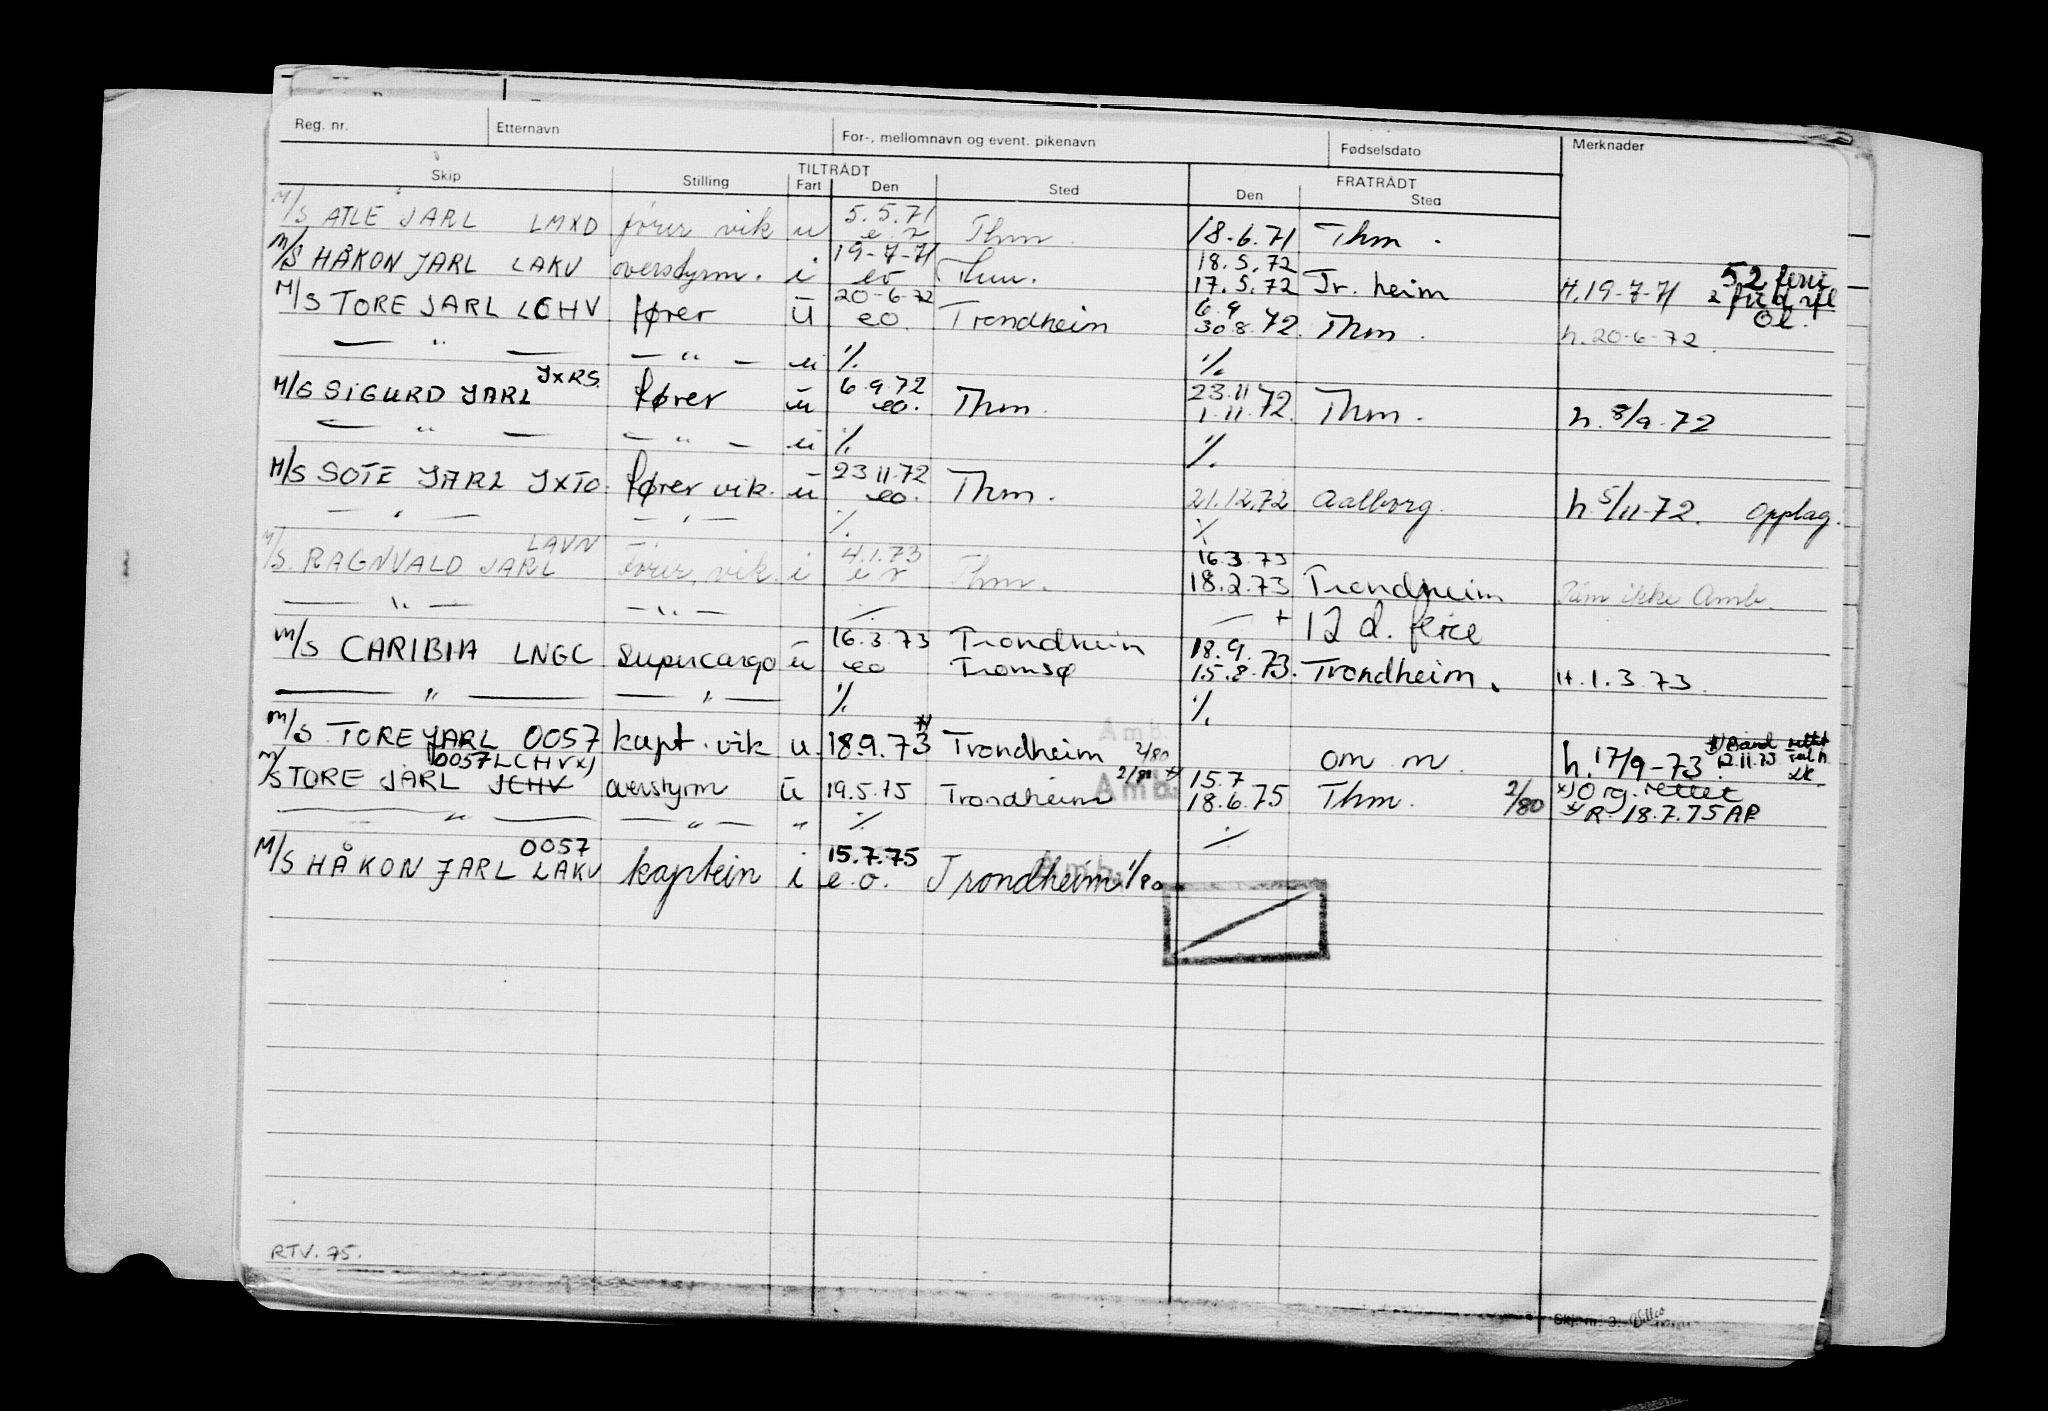 Reg. nr. Etternavn For-, mellomnavn og event. pikenavn Fødselsdato Merknader
TILTRÅDT FRATRÅDT
Skip Stilling Fart Den Sted Den Sted
M/S ATLE JARL LMXD fører vik u 5.5.71 Thm. 18.6.71 Thm.
M/S HÅKON JARL LAKV overstyrm. i 19-7-71 eo Thm. 18.5.72 17.5.72 Tr. heim H. 19-7-71 52 ferie
M/S TORE JARL LCHV fører u 20-6-72 eo. Trondheim 6.9 30.8.72. Thm. h. 20-6-72.
— " — — " — u %. %.
M/S SIGURD JARL JXRS. fører u 6.9.72 eo. Thm. 23.11 1.11.72. Thm. h. 8/9-72
— " — — " — u %. %.
M/S SOTE JARL JXTO. fører vik. u 23.11.72 eo. Thm. 21.12.72 Aalborg. h. 5/11-72. Opplag.
— " — — " — %. %.
M/S. RAGNVALD JARL LAVN fører vik. i 4.1.73 Thm. 16.3.73 18.2.73 Trondheim ikke Amb.
— " — — " — % — + 12 d. ferie
M/S CARIBIA LNGC Supercargo u 16.3.73 eo Trondheim Tromsø 18.9. 15.8.73. Trondheim. H. 1.3.73.
— " — — " — %. %.
M/S TORE JARL 0057 kapt. vik u. 18.9.73 Trondheim Amb. 2/80 om m. h. 17/9-73. 12.11.75
M/S TORE JARL JCHV 0057 LCHV x) overstyrm u 19.5.75 Trondheim Amb. 2/80 15.7 18.6.75 Thm. 2/80 x) Org. rettet
— " — — " — " % % R. 18.7.75 AP
M/S HÅKON JARL 0057 LAKV kaptein i 15.7.75 e.o. Trondheim Amb. 1/80
RTV. 75.